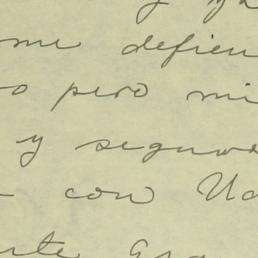 me defien
o pero mi
y segun
con Ud
rte gra